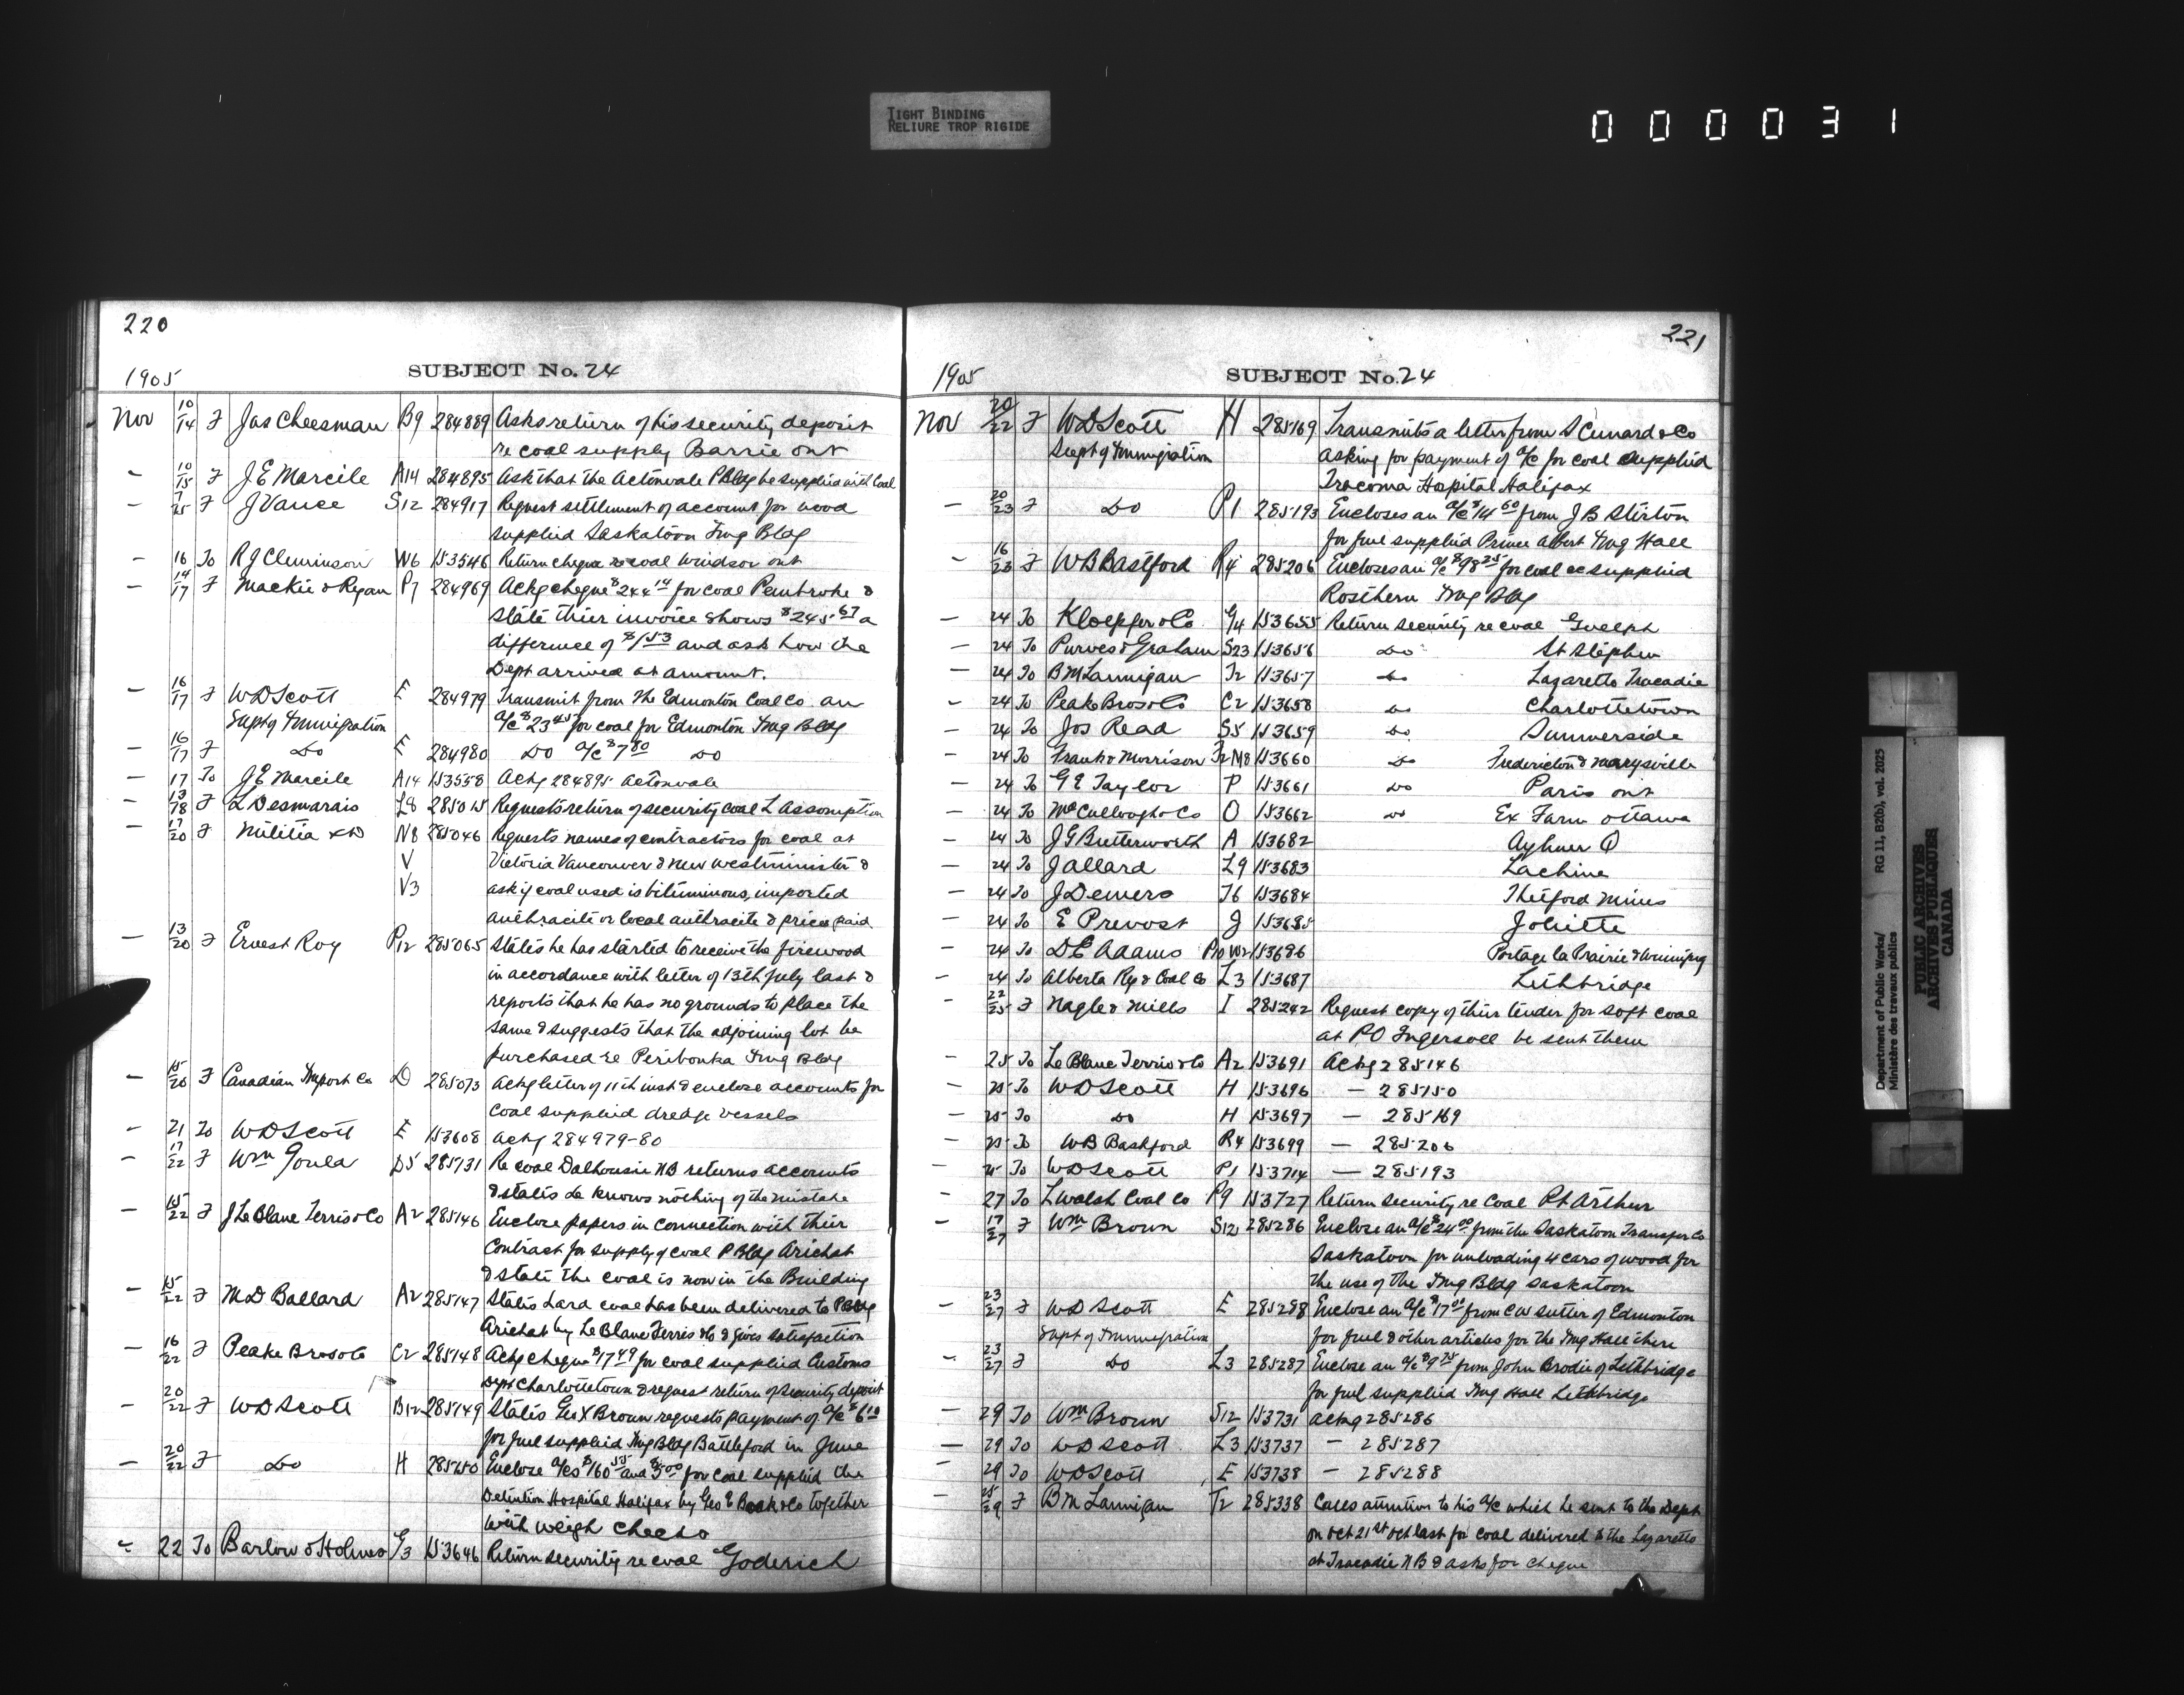 TIGHT BINDING
RELIURE TROP RIGIDE
000031
220
SUBJECT No. 24
1905
Nov 10/14 F Jas Cheesman B9 284889 Asks return of his security deposit
re coal supply Barrie ont
- 10/15 F J E Marcile A14 284895 Ask that the Actonvale PBldg be supplied with Coal
- 7/15 F J Vance S12 284917 Request settlement of account for wood
supplied Saskatoon Img Bldg
- 16 To R J Cleminson W6 153546 Return cheque re coal Windsor ont
- 14/17 F Mackie & Ryan P7 284969 Ackg cheque $244 14 for coal Pembroke &
state their invoice shows $245 67 a
difference of $1 53 and ask how the
Dept arrived at amount.
- 16/17 F W D Scott E 284979 Transmit from the Edmonton Coal Co an
Supt of Immigration a/c $23 45 for coal for Edmonton Img Bldg
- 16/17 F Do E 284980 Do a/c $7 80 Do
- 17 To J E Marcile A14 153558 Ackg 284895 Actonvale
- 13/18 F L Desmarais L8 285015 Requests return of security coal L Assomption
- 17/20 F Militia & D N8 285046 Requests names of contractors for coal at
V Victoria Vancouver & New Westminister &
V3 ask if coal used is bituminous, imported
anthracite or local anthracite & price paid
- 13/20 F Ernest Roy P12 285065 States he has started to receive the firewood
in accordance with letter of 13th July last &
reports that he has no grounds to place the
same & suggests that the adjoining lot be
purchased re Peribonka Img Bldg
- 15/20 F Canadian Import Co D 285073 Ackg letter of 11th inst & enclose accounts for
coal supplied dredge vessels
- 21 To W D Scott E 153608 Ackg 284979-80
- 17/22 F Wm Goula D5 285131 Re coal Dalhousie NB returns accounts
& states he knows nothing of the mistake
- 15/22 F J Le Blanc Terris & Co A2 285146 Enclose papers in connection with their
Contract for supply of coal P Bldg Arichat
& state the coal is now in the Building
- 15/22 F M D Ballard A2 285147 States hard coal has been delivered to PBldg
Arichat by Le Blanc Ferris & Co & gives satisfaction
- 16/22 F Peake Bros & Co C2 285148 Ackg cheque $17 49 for coal supplied Customs
Dept Charlottetown & request return of security deposit
- 20/22 F W D Scott B12 285149 States Geo X Brown requests payment of a/c $6 10
for fuel supplied Img Bldg Battleford in June
- 20/22 F Do H 285150 Enclose a/cs $160 55 and $5 00 for coal supplied the
Detention Hospital Halifax by Geo E Boak & Co together
with weigh checks
- 22 To Barlow & Holmes G3 153646 Return security re coal Goderich
221
SUBJECT No. 24
1905
Nov 20/22 F W D Scott H 285169 Transmits a letter from S Cunard & Co
Supt of Immigration asking for payment of a/c for coal supplied
Tracoma Hospital Halifax
- 20/23 F Do P1 285193 Encloses an a/c $14 60 from J B Stirton
for fuel supplied Prince Albert Img Hall
- 16/23 F W B Bastford R4 285206 Encloses an a/c $98 25 for coal &c supplied
Rosthern Img Bldg
- 24 To Kloepfer & Co G4 153655 Return security re coal Guelph
- 24 To Purves & Graham S23 153656 Do St Stephen
- 24 To B M Lannigan T2 153657 Do Lazaretto Tracadie
- 24 To Peake Bros & Co C2 153658 Do Charlottetown
- 24 To Jos Read S5 153659 Do Summerside
- 24 To Frank & Morrison F2 M8 153660 Do Fredericton & Marysville
- 24 To G E Taylor P 153661 Do Paris ont
- 24 To McCullough & Co O 153662 Do Ex Farm Ottawa
- 24 To J G Butterworth A 153682 Aylmer Q
- 24 To J Allard L9 153683 Lachine
- 24 To J Demers T6 153684 Thetford Mines
- 24 To E Prevost J 153685 Joliette
- 24 To D E Adams P10 W2 153686 Portage la Prairie & Winnipeg
- 24 To Alberta Ry & Coal Co L3 153687 Lethbridge
- 22/25 F Nagle & Mills I 285242 Request copy of their tender for soft coal
at PO Ingersoll be sent them
- 25 To Le Blanc Terris & Co A2 153691 Ackg 285146
- 25 To W D Scott H 153696 - 285150
- 25 To Do H 153697 - 285169
- 25 To W B Bashford R4 153699 - 285206
- 25 To W D Scott P1 153714 - 285193
- 27 To L Walsh Coal Co P9 153727 Return security re Coal Pt Arthur
- 17/27 F Wm Brown S12 285286 Enclose an a/c $24 00 from the Saskatoon Transfer Co
Saskatoon for unloading 4 cars of wood for
the use of the Img Bldg Saskatoon
- 23/27 F W D Scott E 285288 Enclose an a/c $17 00 from C W Sutter of Edmonton
Supt of Immigration for fuel & other articles for the Img Hall there
- 23/27 F Do L3 285287 Enclose an a/c $9 75 from John Brodie of Lethbridge
for fuel supplied Img Hall Lethbridge
- 29 To Wm Brown S12 153731 Ackg 285286
- 29 To W D Scott L3 153737 - 285287
- 29 To W D Scott E 153738 - 285288
- 25/29 F B M Lannigan T2 285338 Calls attention to his a/c which he sent to the Dept
on Oct 21st Oct last for coal delivered to the Lazaretto
at Tracadie NB & asks for cheque
Department of Public Works/ RG 11, B2(b), vol. 2025
Ministère des travaux publics
PUBLIC ARCHIVES
ARCHIVES PUBLIQUES
CANADA